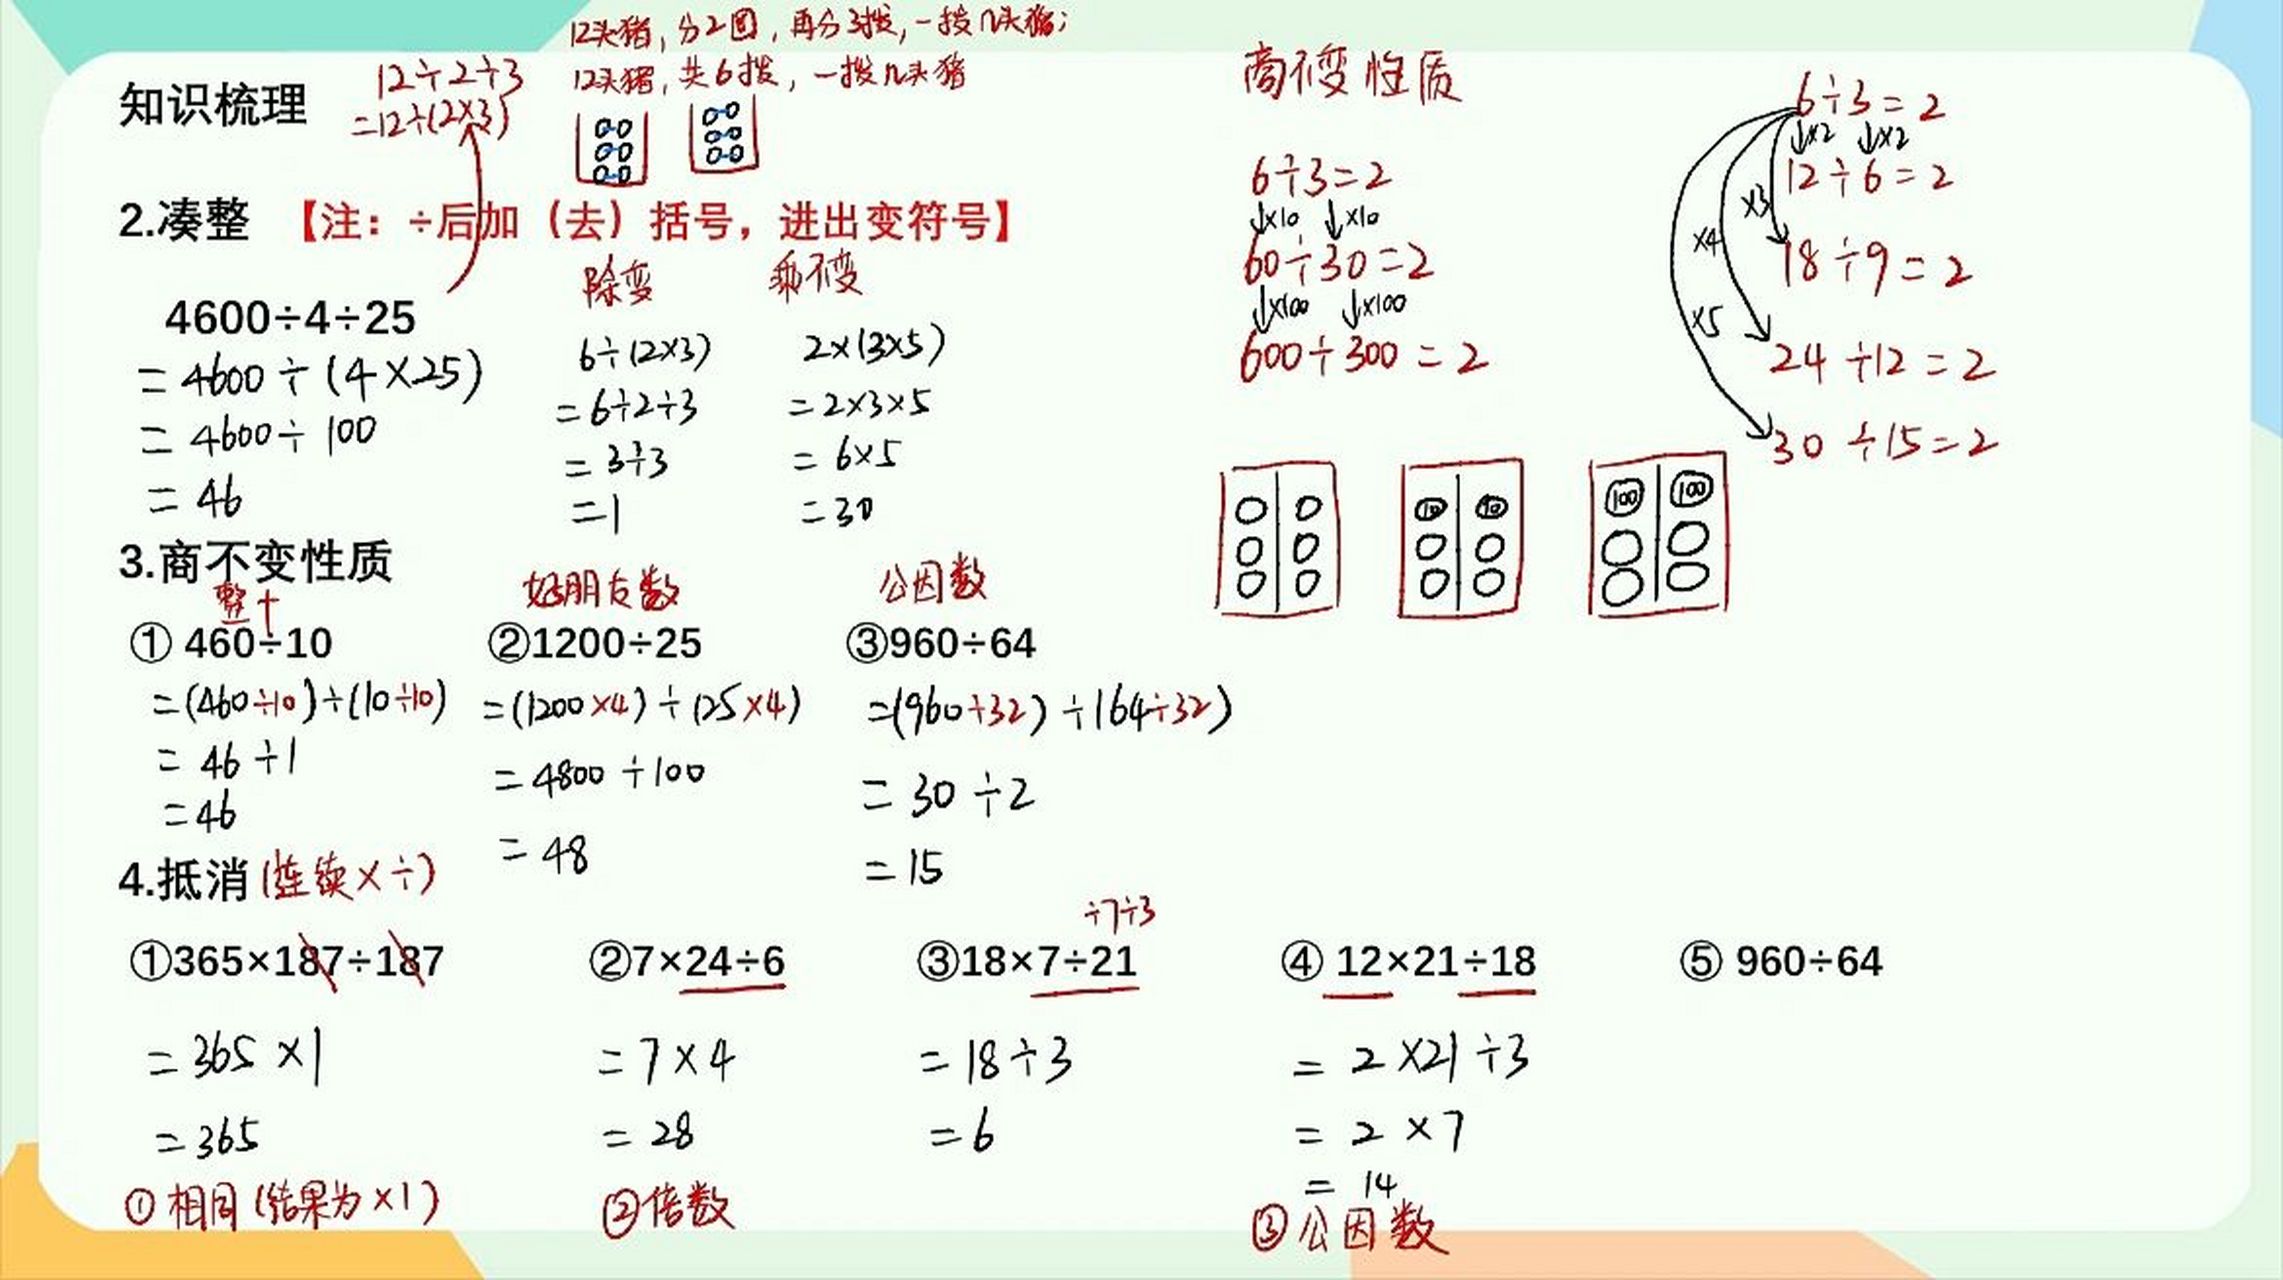 知识梳理
12÷2÷3
=12÷(2×3)
12头猪,分2圈,再分3拨,一拨几头猪;
12头猪,共6拨,一拨几头猪
2.凑整 【注：÷后加（去）括号，进出变符号】
除变 乘不变
4600÷4÷25
=4600÷(4×25)
=4600÷100
=46
6÷(2×3)
=6÷2÷3
=3÷3
=1
2×(3×5)
=2×3×5
=6×5
=30
商不变性质
6÷3=2
↓×10 ↓×10
60÷30=2
↓×100 ↓×100
600÷300=2
6÷3=2
↓×2 ↓×2
12÷6=2
×3
18÷9=2
×4
24÷12=2
×5
30÷15=2
10 10
100 100
3.商不变性质
整十
① 460÷10
=(460÷10)÷(10÷10)
=46÷1
=46
好朋友数
②1200÷25
=(1200×4)÷(25×4)
=4800÷100
=48
公因数
③960÷64
=(960÷32)÷(64÷32)
=30÷2
=15
4.抵消(连续×÷)
①365×187÷187
=365×1
=365
①相同(结果为×1)
②7×24÷6
=7×4
=28
②倍数
÷7÷3
③18×7÷21
=18÷3
=6
④ 12×21÷18
=2×21÷3
=2×7
=14
③公因数
⑤ 960÷64